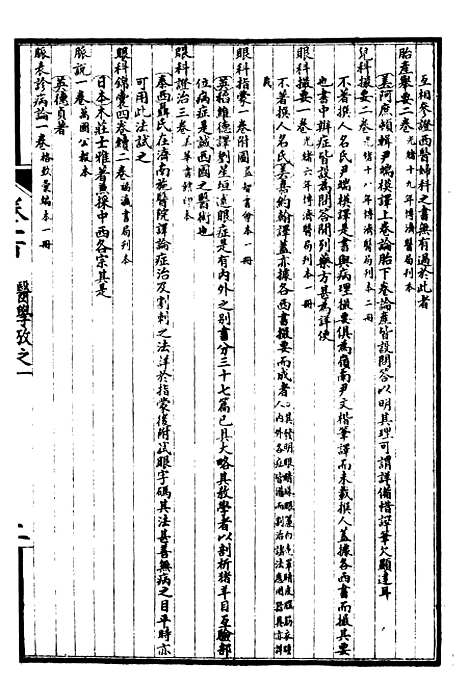 互相參證西醫婦科之書無有過於此者
胎產舉要二卷 光緒十九年博濟醫局刊本
美阿庶頓輯尹端模譯上卷論胎下卷論產皆設問答以明其理可謂詳備惜譯筆欠顯達耳
兒科撮要二卷 光緒十八年博濟醫局刊本二冊
不著撰人名氏尹端模譯是書與病理撮要俱為嶺南尹文楷筆譯而未載撰人蓋據各西書而撮其要
也書中辨症皆設為問答開列藥方甚為詳使
眼科撮要一卷 光緒六年博濟醫局刊本一冊
不著撰人名氏美嘉約翰譯蓋亦據各西書撮要而成者
眼科指蒙一卷附圖 益智書會本一冊
英稻維德譯劉星垣述眼症是有內外之別書分三十七篇已具大略其教學者以剖析猪羊目互驗部
位病症是誠西國之醫術也
眼科證治三卷 美華書館印本
泰西聶氏在濟南施醫院譯論症治及割刺之法洋於指蒙後附試眼字碼其法甚善無病之目平時亦
可用此法試之
眼科錦囊四卷續二卷 福瀛書局刊本
日本本莊士雅著兼採中西各宗其是
脈說一卷 萬國公報本
英德貞著
脈表診病論一卷 格致彙編本一冊
卷二百 醫學攷之一
二